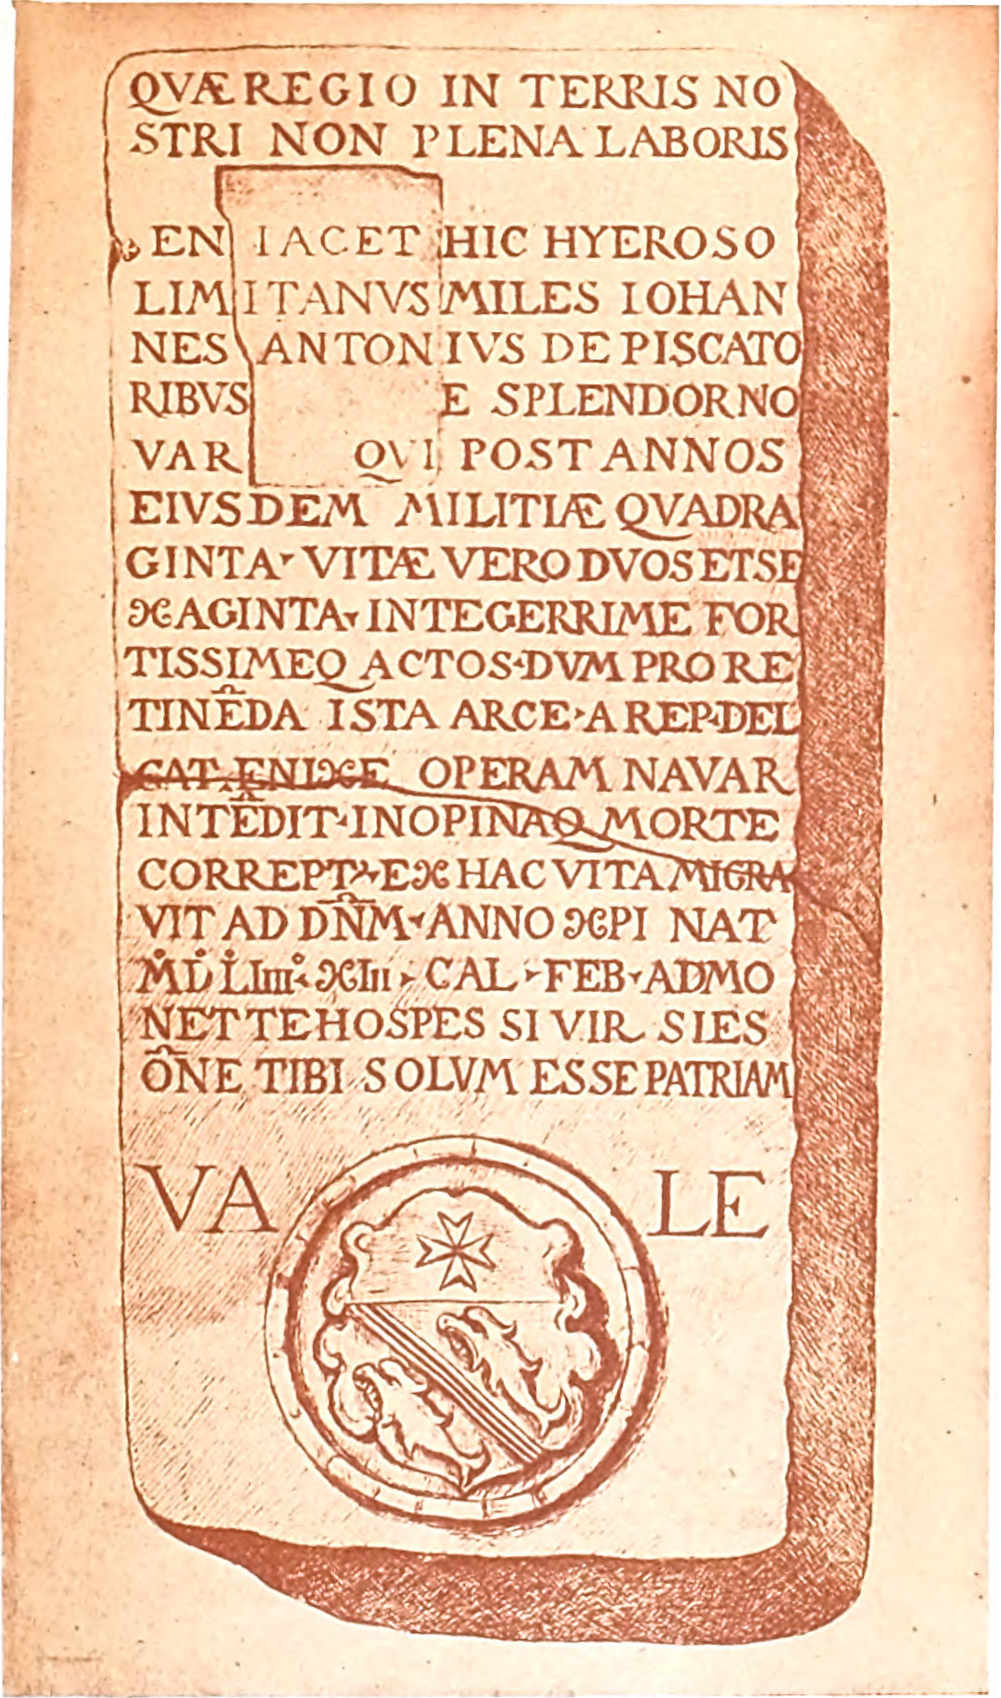 QVÆ REGIO IN TERRIS NO
STRI NON PLENA LABORIS
EN IACET HIC HYEROSO
LIMITANVS MILES IOHAN
NES ANTONIVS DE PISCATO
RIBVS E SPLENDOR NO
VAR QVI POST ANNOS
EIVSDEM MILITIÆ QVADRA
GINTA VITÆ VERO DVOS ET SE
XAGINTA INTEGERRIME FOR
TISSIMEQ ACTOS DVM PRO RE
TINĒDA ISTA ARCE A REP DEL
CAT ENIXE OPERAM NAVAR
INTĒDIT INOPINAQ MORTE
CORREPT EX HAC VITA MIGRA
VIT AD DN̄M ANNO XPI NAT
M D LIIII XIII CAL FEB ADMO
NET TE HOSPES SI VIR SI ES
ŌNE TIBI SOLVM ESSE PATRIAM
VALE